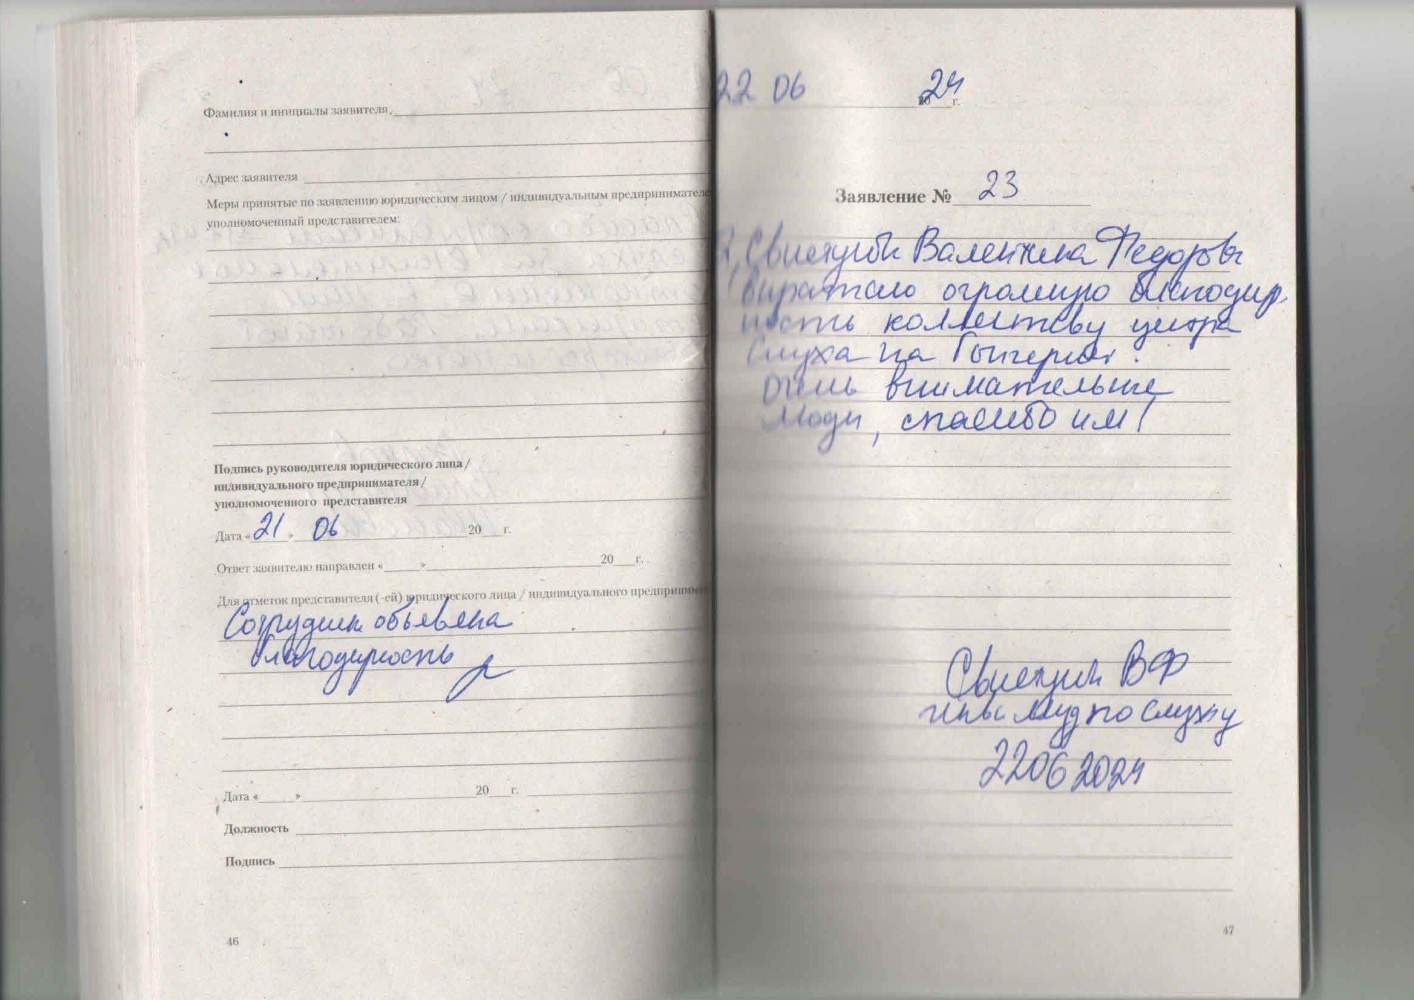 Фамилия и инициалы заявителя
Адрес заявителя
Меры принятые по заявлению юридическим лицом / индивидуальным предпринимателе
уполномоченный представителем:
Подпись руководителя юридического лица /
индивидуального предпринимателя /
уполномоченного представителя
Дата « 21 » 06 20 г.
Ответ заявителю направлен « » 20 г.
Для отметок представителя (-ей) юридического лица / индивидуального предприним
объявлена
благодарность
Дата « » 20 г.
Должность
Подпись
46
22 06 24 г.
Заявление № 23
Валентина
выражаю огромную благодар
ность коллективу центра
слуха на
очень внимательные
люди, спасибо им!
ВФ
по слуху
22 06 2024
47